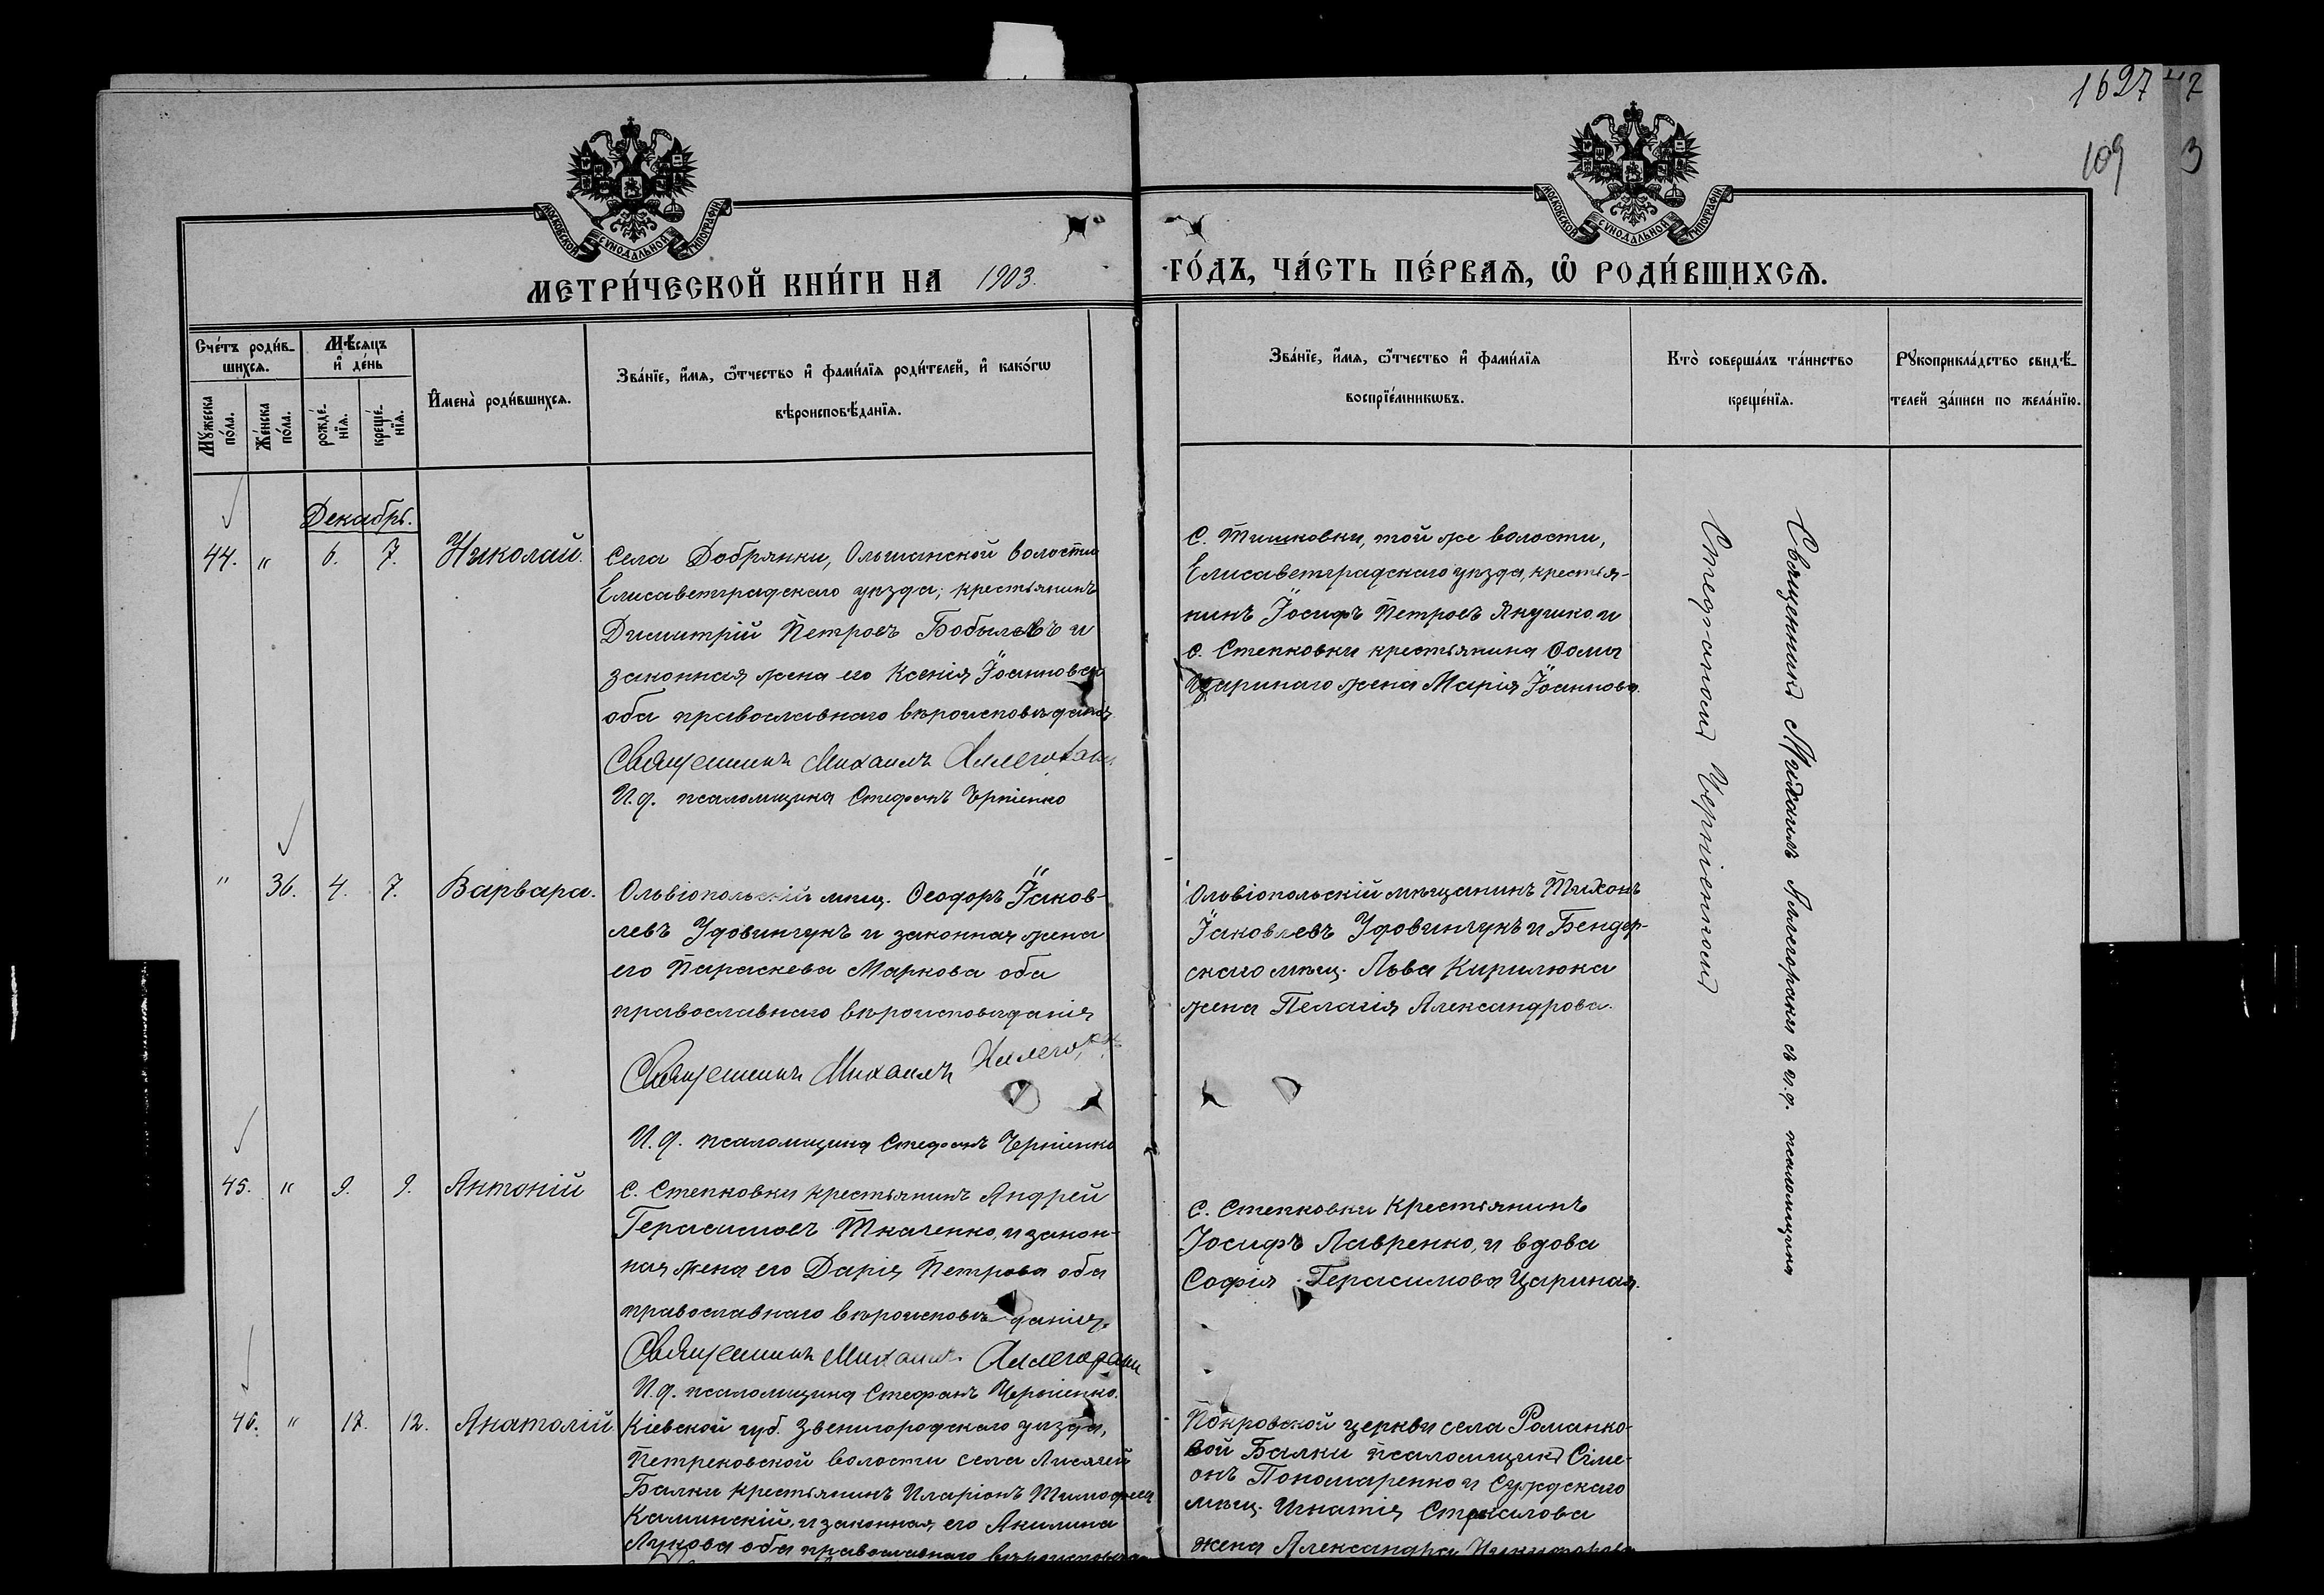 1627
109
МОСКОВСКОЙ СѴНОДАЛЬНОЙ ТИПОГРАФІИ
МОСКОВСКОЙ СѴНОДАЛЬНОЙ ТИПОГРАФІИ
МЕТРИ́ЧЕСКОЙ КНИ́ГИ НА 1903.
ГО́ДЪ, ЧА́СТЬ ПЕ́РВАѦ, Ѽ РОДИ́ВШИХСѦ.
Сче́тъ роди́в-
шихсѧ.
Мꙋ́жеска
по́ла.
Же́нска
по́ла.
Мѣ́сѧцъ
и҆ де́нь
рожде́-
нїѧ.
креще́-
нїѧ.
И҆мена̀ роди́вшихсѧ.
Зва́нїе, и҆́мѧ, ѻ҆́тчество и҆ фами́лїѧ роди́телей, и҆ како́гѡ
вѣроисповѣ́данїѧ.
Зва́нїе, и҆́мѧ, ѻ҆́тчество и҆ фами́лїѧ
воспрїе́мникѡвъ.
Кто̀ соверша́лъ та́инство
креще́нїѧ.
Рꙋкоприкла́дство свидѣ́-
телей за́писи по жела́нїю.
Декабрь.
44. " 6. 7. Николай.
Села Добрянки, Ольшанской волости
Елисаветградскаго уѣзда, крестьянинъ
Димитрій Петровъ Бобылевъ и
законная жена его Ксенія Іоаннова
оба православнаго вѣроисповѣданія
Священникъ Михаилъ
И.д. псаломщика Стефанъ Черніенко
С. Тишковки, той же волости,
Елисаветградскаго уѣзда, крестья-
нинъ Іосифъ Петровъ Янушко и
с. Степковки крестьянина Ѳомы
Царинаго жена Марія Іоаннова.
" 36. 4. 7. Варвара.
Ольвіопольскій мѣщ. Ѳеодоръ Іаков-
левъ Удовинчукъ и законная жена
его Параскева Маркова оба
православнаго вѣроисповѣданія
Священникъ Михаилъ
И.д. псаломщика Стефанъ Черніенко
Ольвіопольскій мѣщанинъ Тихонъ
Іаковлевъ Удовинчукъ и Бендер-
скаго мѣщ. Льва Кирилюка
жена Пелагія Александрова.
45. " 9. 9. Антоній
С. Степковки крестьянинъ Андрей
Герасимовъ Ткаченко, и закон-
ная жена его Дарія Петрова оба
православнаго вѣроисповѣданія
Священникъ Михаилъ
И.д. псаломщика Стефанъ Черніенко.
С. Степковки крестьянинъ
Іосифъ Лавренко, и вдова
Софія Герасимова Цариная.
46. " 17. 12. Анатолій
Кіевской губ. Звенигородскаго уѣзда,
Петриковской волости села Лисячей
Балки крестьянинъ Иларіонъ Тимофеев
Каминскій, и законная его Акилина
Лукова оба православнаго
Покровской церкви села Романко-
вой Балки псаломщикъ Сіме-
онъ Пономаренко и Суждскаго
мѣщ. Игнатія
жена Александра Никифорова
Священникъ Михаилъ съ и.д. псаломщика
Стефаномъ Черніенкомъ